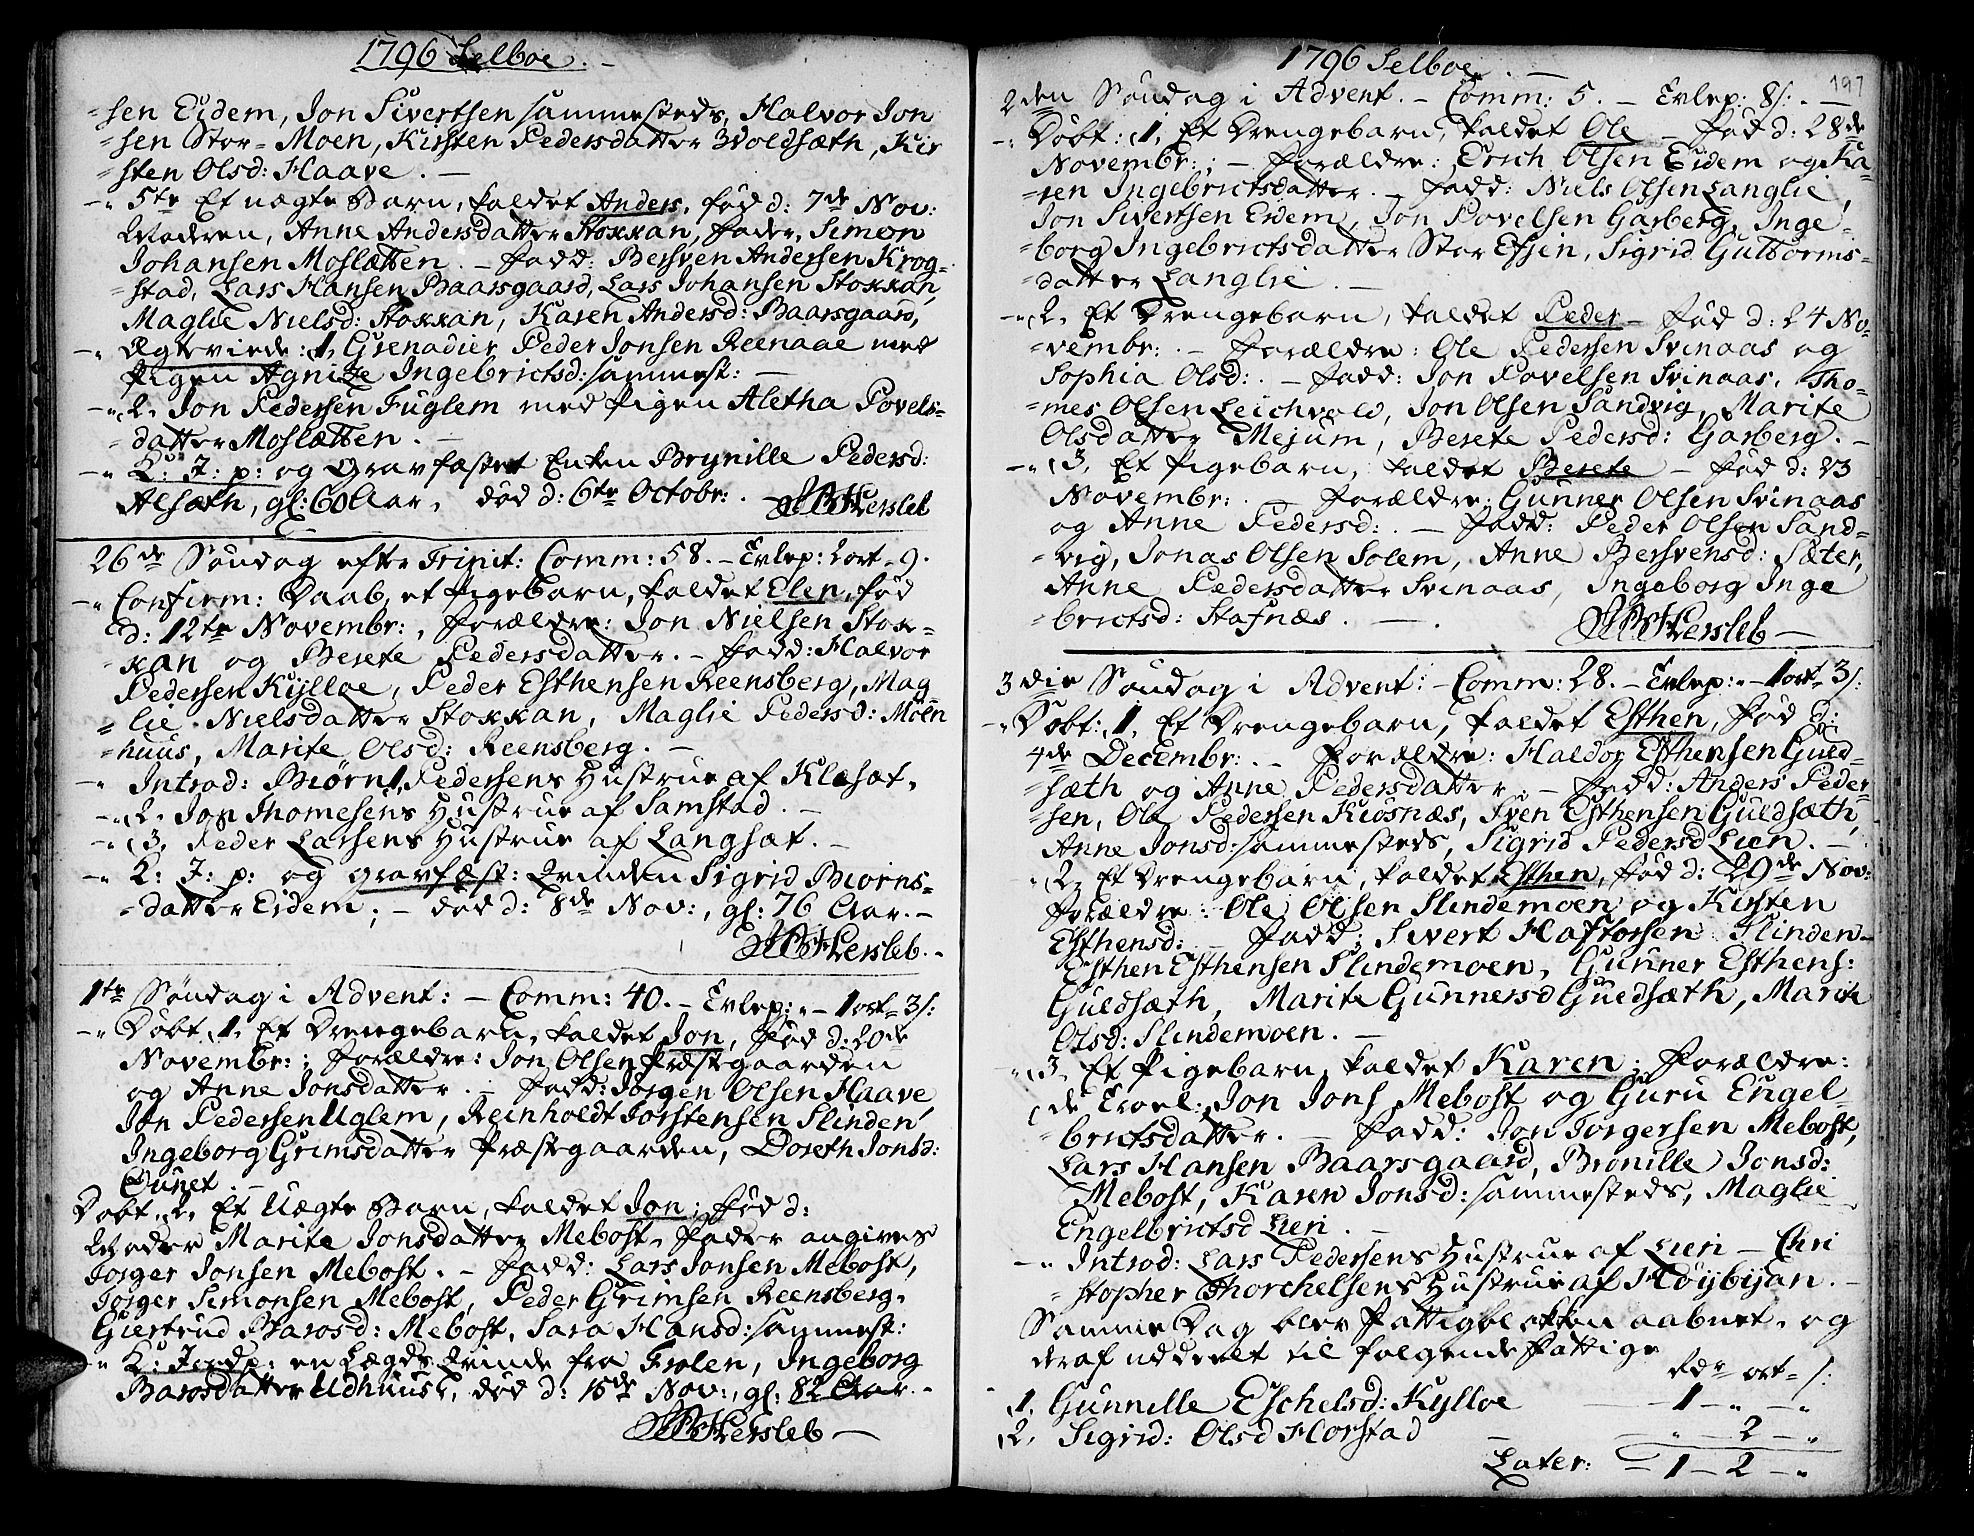 1796 Selboe.
-sen Eidem, Jon Sivertsen sammesteds, Halvor Jon
-sen Stor-Moen, Kirsten Pedersdatter Woldsæth, Kir
-sten Olsd: Haave.
5te Et uægte Barn, kaldet Anders, fød d: 7de Nov:
Moderen, Anne Andersdatter Stokkan, Fader, Simon
Johansen Moslætten. - Fadd: Bersven Andersen Krog-
-stad, Lars Hansen Baarsgaard, Lars Johansen Stokkan,
Maglie Nielsd: Stokkan, Karen Andersd: Baarsgaard,
Ægteviede: 1, Grenadier Peder Jonsen Reenaae med
Pigen Agnize Ingebrictsd: sammest:
2, Jon Pedersen Fuglem med Pigen Aletha Povels-
-datter Moslætten.
K: J: p: og Gravfæstet Enken Brynille Pedersd:
Alsæth, gl: 60 Aar, død d: 6te Octobr:. HHersleb
26de Søndag efter Trinit: Comm: 58. - Evlep: 2 ort - 9.
Confirm: Daab, et Pigebarn, kaldet Elen, fød
d: 12te Novembr:, Forældre: Jon Nielsen Stok-
-kan og Berete Pedersdatter. - Fadd: Halvor
Pedersen Kylloe, Peder Esthensen Reensberg, Mag-
-lie Nielsdatter Stokkan, Maglie Pedersd: Moen
-huus, Marite Olsd: Reensberg.
Introd: Biørn Pedersens Hustrue af Klæsæt,
2, Jon Thomesens Hustrue af Samstad.
3, Peder Larsens Hustrue af Langsæt.
K: J: p: og gravfæst: Qvinden Sigrid Biørns-
-datter Eidem; - død d: 8de Nov:, gl: 76 Aar.
HHersleb.
1te Søndag i Advent: - Comm: 40. - Evlep: - 1 ort - 3/:
Døbt, 1, Et Drengebarn, kaldet Jon, fød d: 20de
Novembr:; Forældre: Jon Olsen Præstgaarden
og Anne Jonsdatter. - Fadd: Jørgen Olsen Haave
Jon Pedersen Uglem, Reinholdt Torstensen Slinden,
Ingeborg Grimsdatter Præstgaarden, Doreth Jonsd:
Ounet.
Døbt, 2, Et Uægte Barn, kaldet Jon; fød d:
Moder Marite Jonsdatter Mebost, Fader angives
Jørger Jonsen Mebost. - Fadd: Lars Jonsen Mebost,
Jørger Simonsen Mebost, Peder Grimsen Reensberg,
Giertrud Barosd: Mebost, Sara Hansd: sammest:
K: J: p: en Lægds Qvinde fra Frolen, Ingeborg
Barosdatter Udhuus, død d: 15de Nov:, gl: 82 Aar.
HHersleb
1796 Selboe.
197
2den Søndag i Advent. - Comm: 5. - Evlep: 8/:.
Døbt: 1, Et Drengebarn, kaldet Ole - fød d: 28de
Novembr:; - Forældre: Erich Olsen Eidem og Ka-
-ren Ingebrictsdatter. - Fadd: Niels Olsen Langlie,
Jon Sivertsen Eidem, Jon Povelsen Garberg, Inge-
-borg Ingebrictsdatter Stor Efsin, Sigrid Gulborms-
-datter Langlie.
2, Et Drengebarn, kaldet Peder - fød d: 24 No-
-vembr:. - Forældre: Ole Pedersen Svinaas og
Sophia Olsd:. - Fadd: Jon Povelsen Svinaas, Tho-
-mes Olsen Leichvold, Jon Olsen Sandvig, Marite
Olsdatter Mejum, Berete Pedersd: Garberg.
3, Et Pigebarn, kaldet Berete - fød d: 23
Novembr:. - Forældre: Gunner Olsen Svinaas
og Anne Pedersd:. - Fadd: Peder Olsen Sand-
-vig, Jonas Olsen Solem, Anne Bersvensd: Sæter,
Anne Pedersdatter Svinaas, Ingeborg Inge
-brictsd: Stafnæs.
HHersleb
3die Søndag i Advent: - Comm: 28. - Evlep: - 1 ort 3/:
Døbt: 1, Et Drengebarn, kaldet Esthen, fød d:
4de Decembr:. - Forældre: Haldor Esthensen Guld-
-sæth og Anne Pedersdatter. - Fadd: Anders Peder-
-sen, Ole Pedersen Kiøsnæs, Sven Esthensen Guldsæth,
Anne Jonsd: sammesteds, Sigrid Pedersd Lien.
2, Et Drengebarn, kaldet Esthen, fød d: 29de Nov:
Forældre: Ole Olsen Slindemoen og Kirsten
Esthensd:. - Fadd: Sivert Haftorsen Slinden
Esthen Esthensen Slindemoen, Gunner Esthens:
Guldsæth, Marite Gunnersd Guldsæth, Marite
Olsd: Slindemoen.
3, Et Pigebarn, kaldet Karen; Forældre:
Jon Jons Mebost og Guru Engel-
-brictsdatter. - Fadd: Jon Jørgersen Mebost,
Lars Hansen Baarsgaard, Bronille Jonsd:
Mebost, Karen Jonsd: sammesteds, Maglie
Engelbrictsd Lien.
Introd: Lars Pedersens Hustrue af Lien - Chri
-stopher Thorchelsens Hustrue af Høybyan.
Samme Dag blev Fattigblokken aabnet, og
deraf uddeelt til følgende Fattige
rdr ort /:
1, Gunnille Eschelsd: Kylloe 1 - " - "
2, Sigrid: Olsd Horstad " - 2 - "
Later: 1 - 2 - "